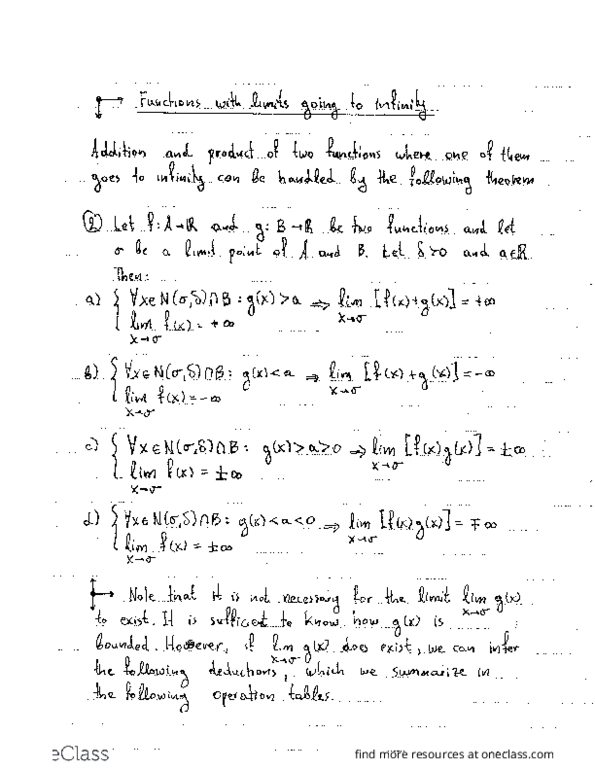 Functions with limits going to infinity
Addition and product of two functions where one of them
goes to infinity can be handled by the following theorem
② Let f: A→ℝ and g: B→ℝ be two functions and let
σ be a limit point of A and B. Let δ>0 and a∈ℝ
Then:
a) { ∀x∈N(σ,δ)∩B : g(x)>a ⇒ lim [f(x)+g(x)] = +∞
lim f(x) = +∞ x→σ
x→σ
b) { ∀x∈N(σ,δ)∩B : g(x)<a ⇒ lim [f(x)+g(x)] = -∞
lim f(x) = -∞ x→σ
x→σ
c) { ∀x∈N(σ,δ)∩B : g(x)>a>0 ⇒ lim [f(x)g(x)] = ±∞
lim f(x) = ±∞ x→σ
x→σ
d) { ∀x∈N(σ,δ)∩B : g(x)<a<0 ⇒ lim [f(x)g(x)] = ∓∞
lim f(x) = ±∞ x→σ
x→σ
Note that it is not necessary for the limit lim g(x)
x→σ
to exist. It is sufficient to know how g(x) is
bounded. However, if lim g(x) does exist, we can infer
x→σ
the following deductions, which we summarize in
the following operation tables.
eClass
find more resources at oneclass.com